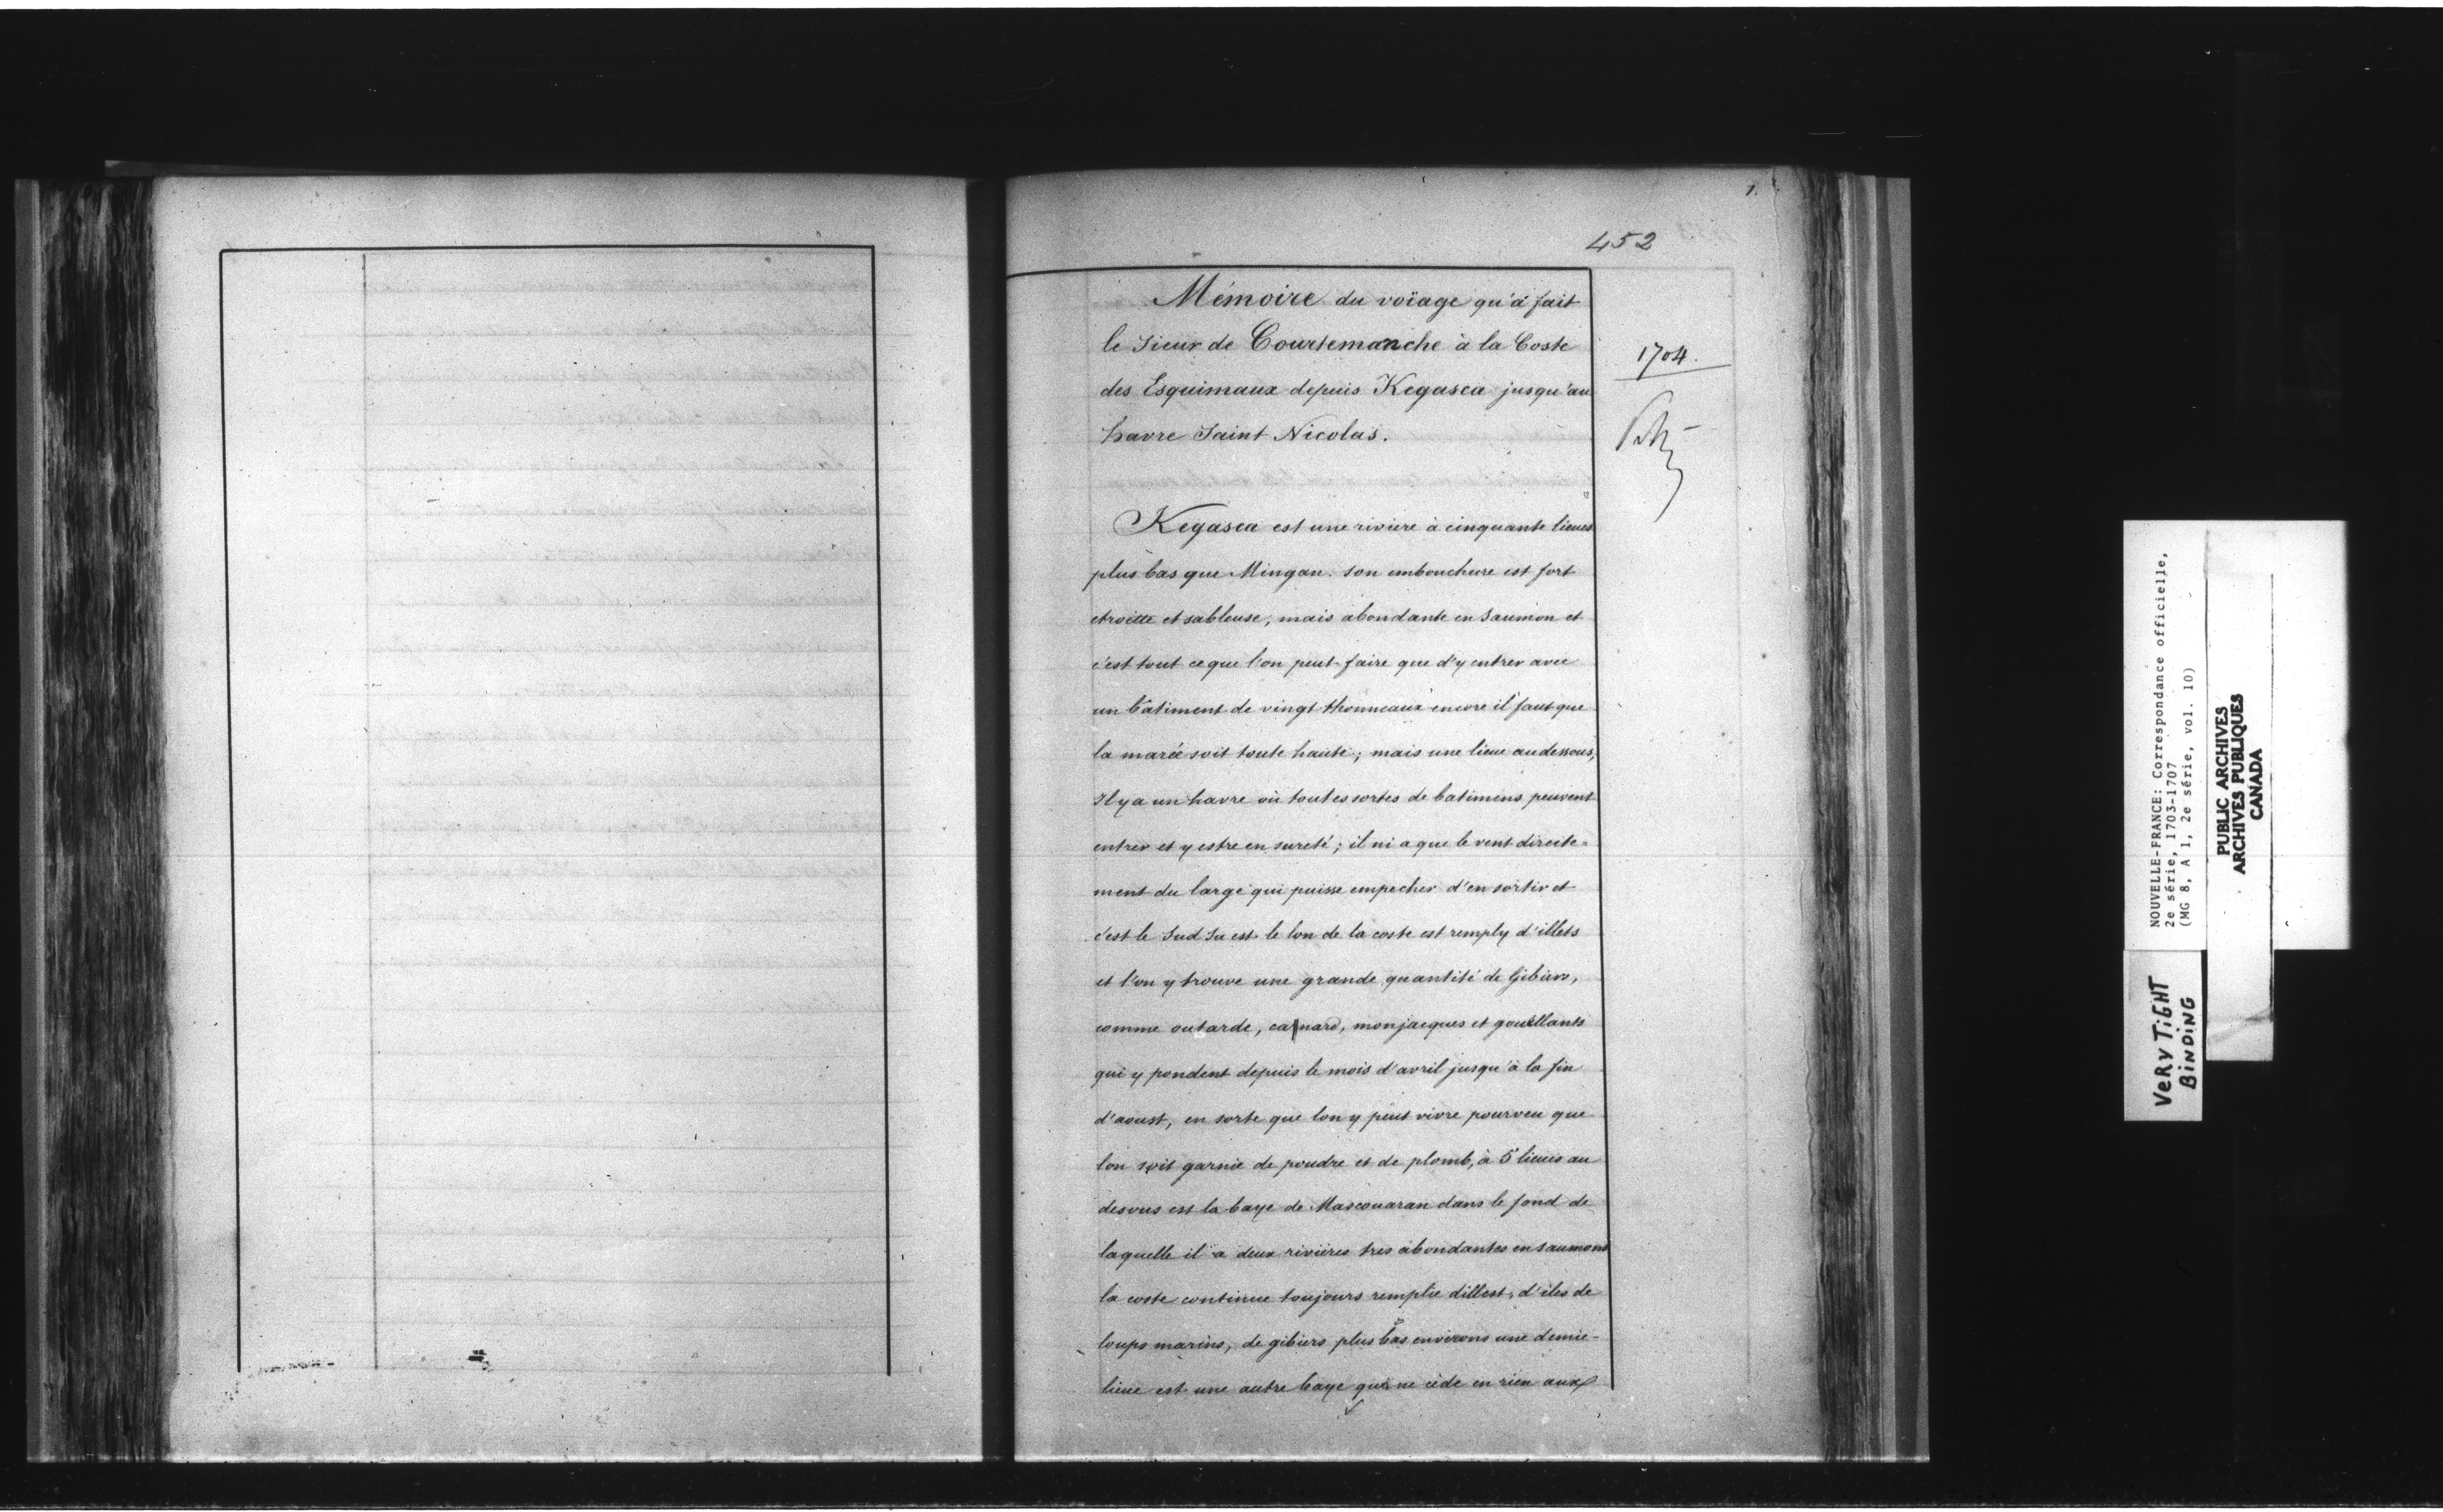 1.
452
Mémoire du voïage qu'a fait
le Sieur de Courtemanche à la Coste
des Esquimaux depuis Kegasca jusqu'au
havre Saint Nicolas.
1704.
Kegasca est une riviere à cinquante lieues
plus bas que Mingan. son embouchure est fort
etroitte et sableuse, mais abondante en Saumon et
c'est tout ce que l'on peut faire que d'y entrer avec
un bâtiment de vingt thonneaux encore il faut que
la marée soit toute haute; mais une lieue au dessous,
Il y a un havre où toutes sortes de batimens peuvent
entrer et y estre en sureté; il ni a que le vent directe=
ment du large qui puisse empecher d'en sortir et
c'est le Sud Su est. le lon de la coste est remply d'illets
et l'on y trouve une grande quantité de Gibiers,
comme outarde, canard, monjacques et gouellants
qui y pondent depuis le mois d'avril jusqu'à la fin
d'aoust, en sorte que lon y peut vivre pourveu que
lon soit garnie de poudre et de plomb, à 5 lieues au
desous est la baye de Mascouaran dans le fond de
laquelle il a deux rivieres tres abondantes en saumons
la coste continue toujours remplie dillest, d'iles de
loups marins, de gibiers plus bas environs une demie-
lieue est une autre baye qui ne cède en rien aux
NOUVELLE-FRANCE: Correspondance officielle,
2e série, 1703-1707
(MG 8, A 1, 2e série, vol. 10)
PUBLIC ARCHIVES
ARCHIVES PUBLIQUES
CANADA
VERY TIGHT
BINDING